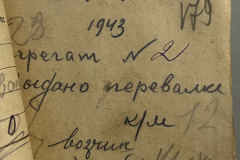 1943
179
28
Агрегат N 2
Выдано перевалке
к/м 12
возчик